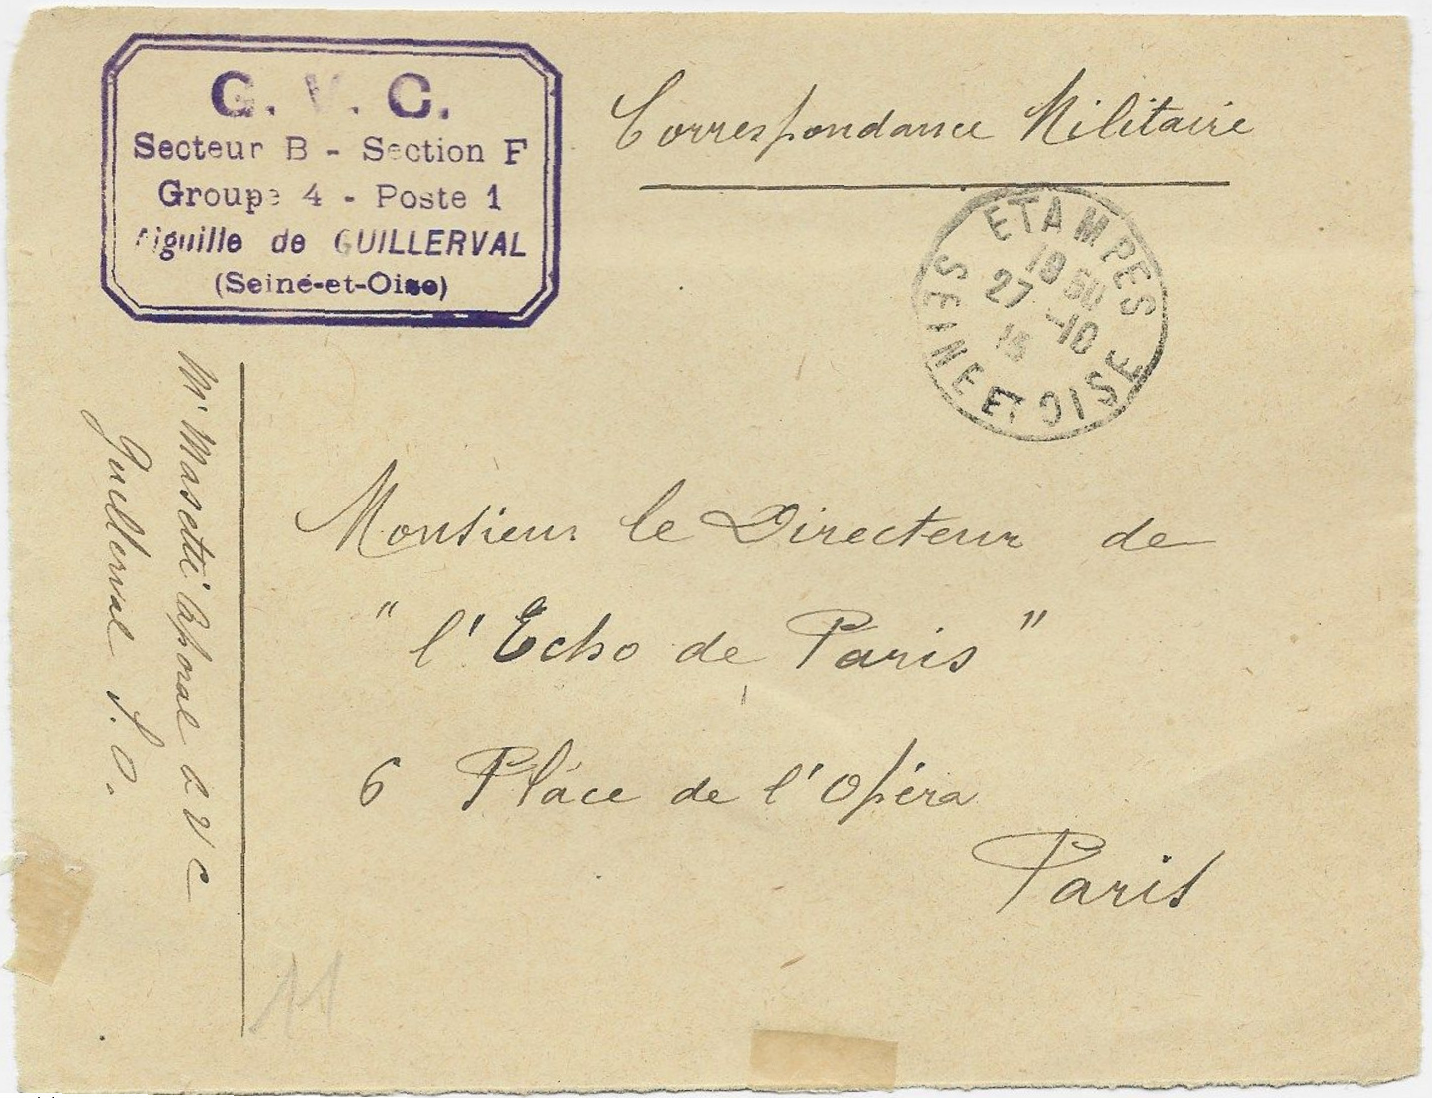 G. V. C.
Secteur B - Section F
Groupe 4 - Poste 1
Aiguille de GUILLERVAL
(Seine-et-Oise)
Correspondance Militaire
ETAMPES
18 50
27 -10
15
SEINE ET OISE
Mr Masetti Caporal G V C
Guillerval S. O.
Monsieur le Directeur de
" l'Echo de Paris "
6 Place de l'Opéra
Paris
11